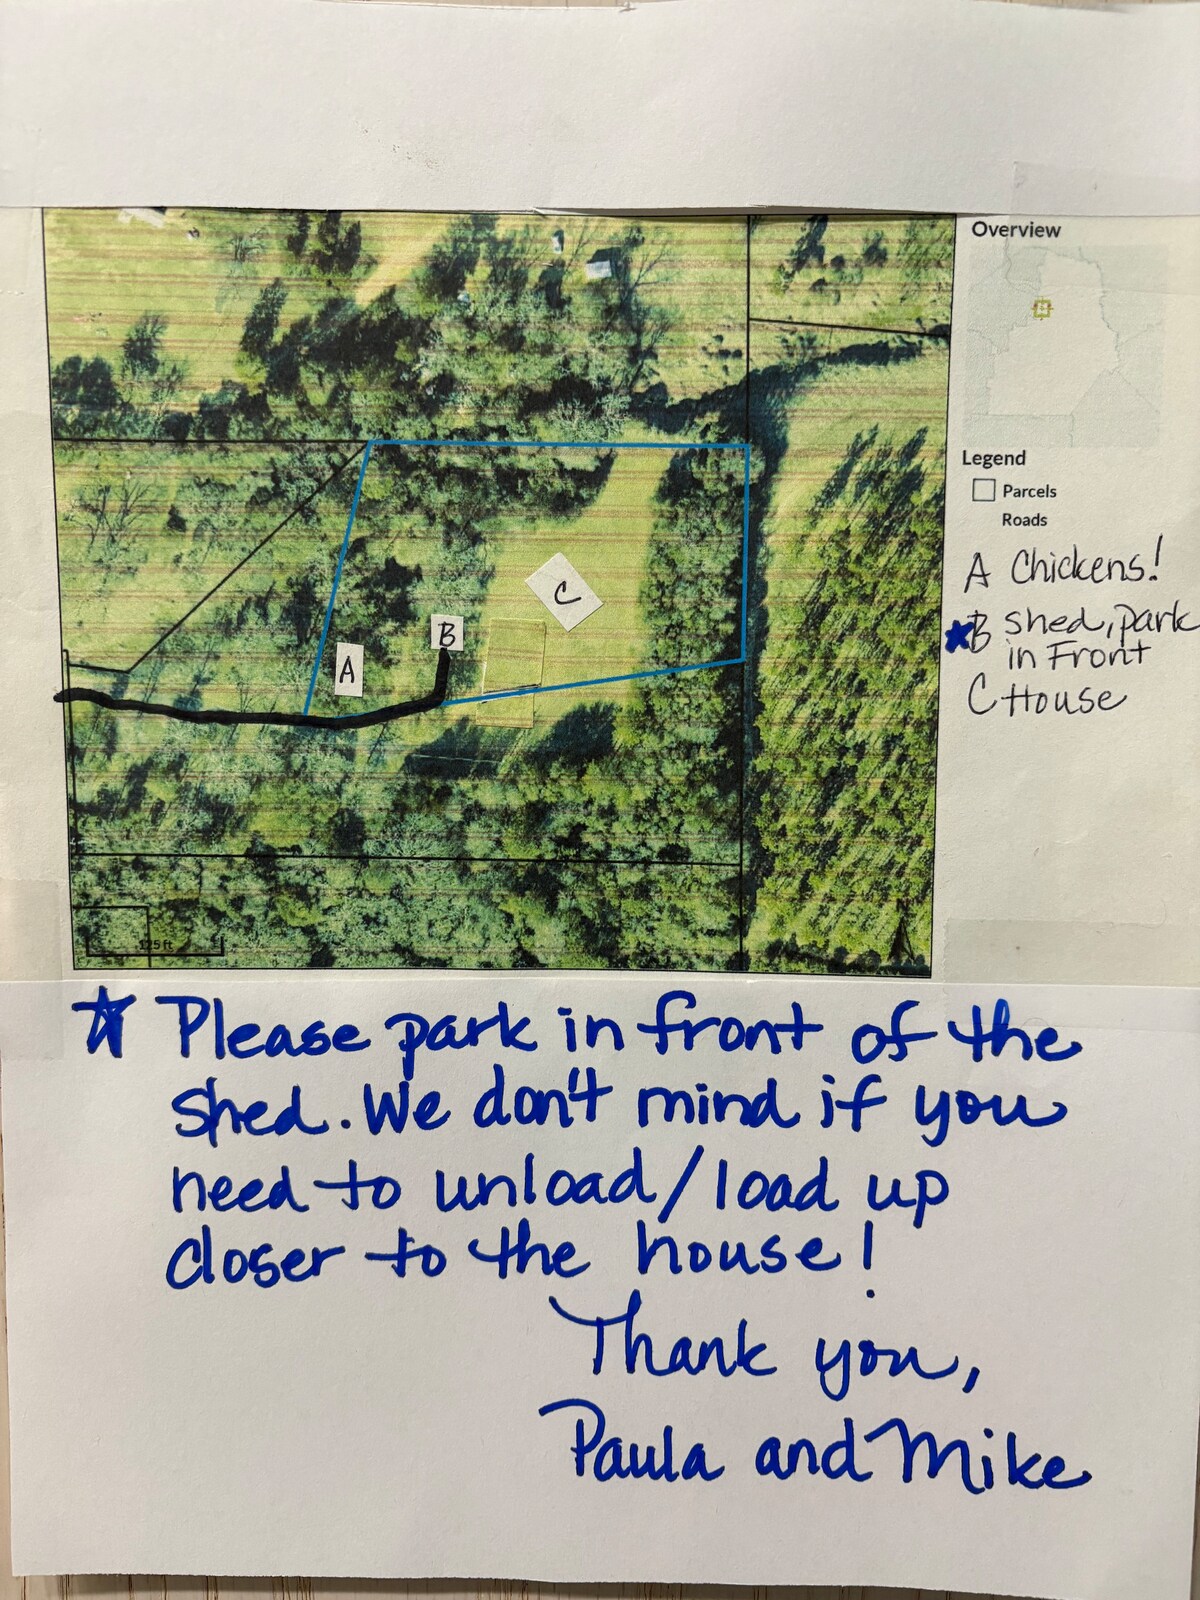 Overview
Legend
Parcels
Roads
A Chickens!
B Shed, park
in Front
C House
C
B
A
125 ft
N
Please park in front of the
shed. We don't mind if you
need to unload/load up
closer to the house!
Thank you,
Paula and Mike